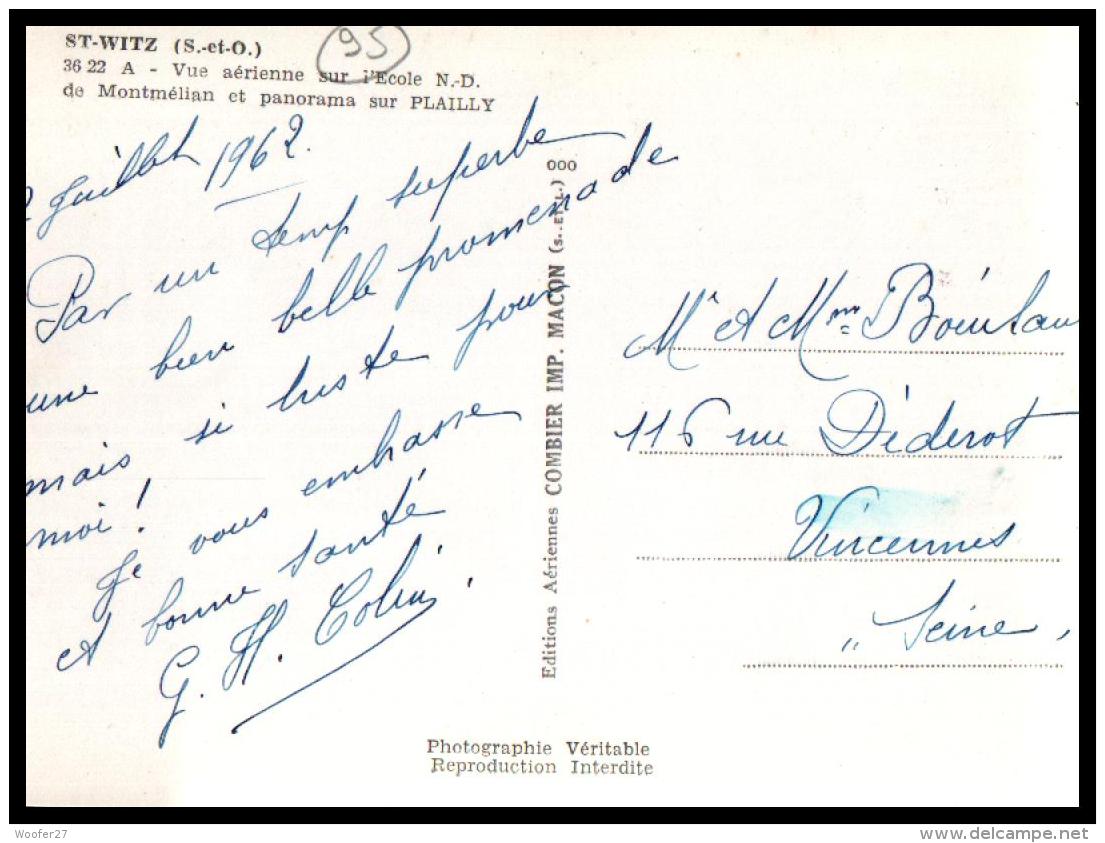 ST-WITZ (S.-et-O.)
95
36 22 A - Vue aérienne sur l'Ecole N.-D.
de Montmélian et panorama sur PLAILLY
Juillet 1962.
Par un temp superbe
une bien belle promenade
mais si triste pour
moi !
Je vous embrasse
et bonne santé
G. H. Colin
Editions Aériennes COMBIER IMP. MACON (S.-ET-L.) 000
Mr et Mme
116 rue Déderot
Vincennes
„ Seine „
Photographie Véritable
Reproduction Interdite
Woofer27
www.delcampe.net